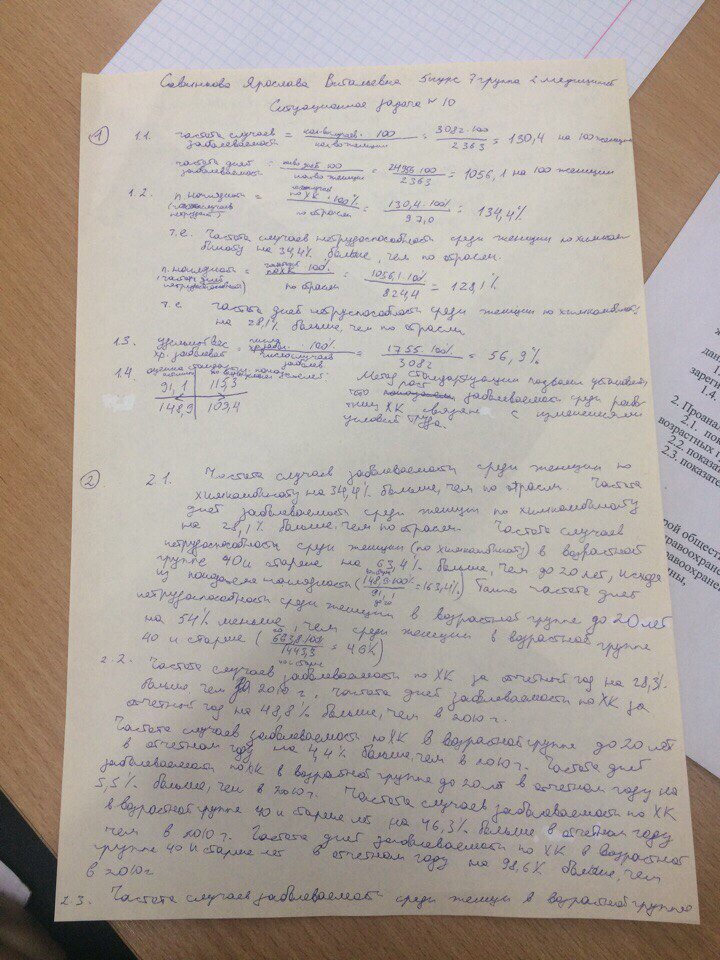 Ярослава Витальевна 5 курс 7 группа 2 медицинский
Ситуационная задача № 10
1
1.1. частота случаев заболеваемости = кол-во случаев · 100 / кол-во женщин = 3082·100 / 2363 = 130,4 на 100 женщин
частота дней заболеваемости = кол-во дней·100 / кол-во женщин = 24956·100 / 2363 = 1056,1 на 100 женщин
1.2. п. наглядности (частота случаев нетрудосп.) = по ХК · 100% / по отрасли = 130,4·100% / 97,0 = 134,4%
т.е. Частота случаев нетрудоспособности среди женщин по химкомбинату на 34,4% больше, чем по отрасли.
п. наглядности (частоты дней нетрудоспособности) = ХК 100% / по отрасли = 1056,1·100% / 824,4 = 128,1%
т.е. частота дней нетрудоспособности среди женщин по химкомбинату
на 28,1% больше, чем по отрасли
1.3. удельный вес хр. заболеват = число хр. заболев · 100% / число случаев заболев = 1755·100% / 3082 = 56,9%
1.4. оценка стандартиз. показ
91,1 115,3
148,9 103,4
Метод стандартизации позволил установить,
что рост заболеваемости среди работниц ХК связан с изменениями
условий труда.
2
2.1. Частота случаев заболеваемости среди женщин по
химкомбинату на 34,4% больше, чем по отрасли. Частота
дней заболеваемости среди женщин по химкомбинату
на 28,1% больше, чем по отрасли. Частота случаев
нетрудоспособности среди женщин (по химкомбинату) в возрастной
группе 40 и старше на 63,4% больше, чем до 20 лет, исходя
из показателя наглядности (148,9·100% / 91,1 = 163,4%) Также частота дней
нетрудоспособности среди женщин в возрастной группе до 20 лет
на 54% меньше, чем среди женщин в возрастной группе
40 и старше (663,8·100 / 1443,5 = 46%)
2.2. Частота случаев заболеваемости по ХК за отчетный год на 28,3%
больше чем за 2010 г, частота дней заболеваемости по ХК за
отчетный год на 48,8% больше, чем в 2010 г.
Частота случаев заболеваемости по ХК в возрастной группе до 20 лет
в отчетном году на 4,4% больше, чем в 2010 г. Частота дней
заболеваемости по ХК в возрастной группе до 20 лет в отчетном году на
5,5% больше, чем в 2010 г. Частота случаев заболеваемости по ХК
в возрастной группе 40 и старше лет на 46,3% больше в отчетном году
чем в 2010 г. Частота дней заболеваемости по ХК в возрастной
группе 40 и старше лет в отчетном году на 98,6% больше, чем
в 2010 г
2.3. Частота случаев заболеваемости среди женщин в возрастной группе
дан
зареги
1.4.
2. Проанал
2.1. пок
возрастных г
2.2. показат
2.3. показате
рой общест
равоохране
равоохранел
ены,